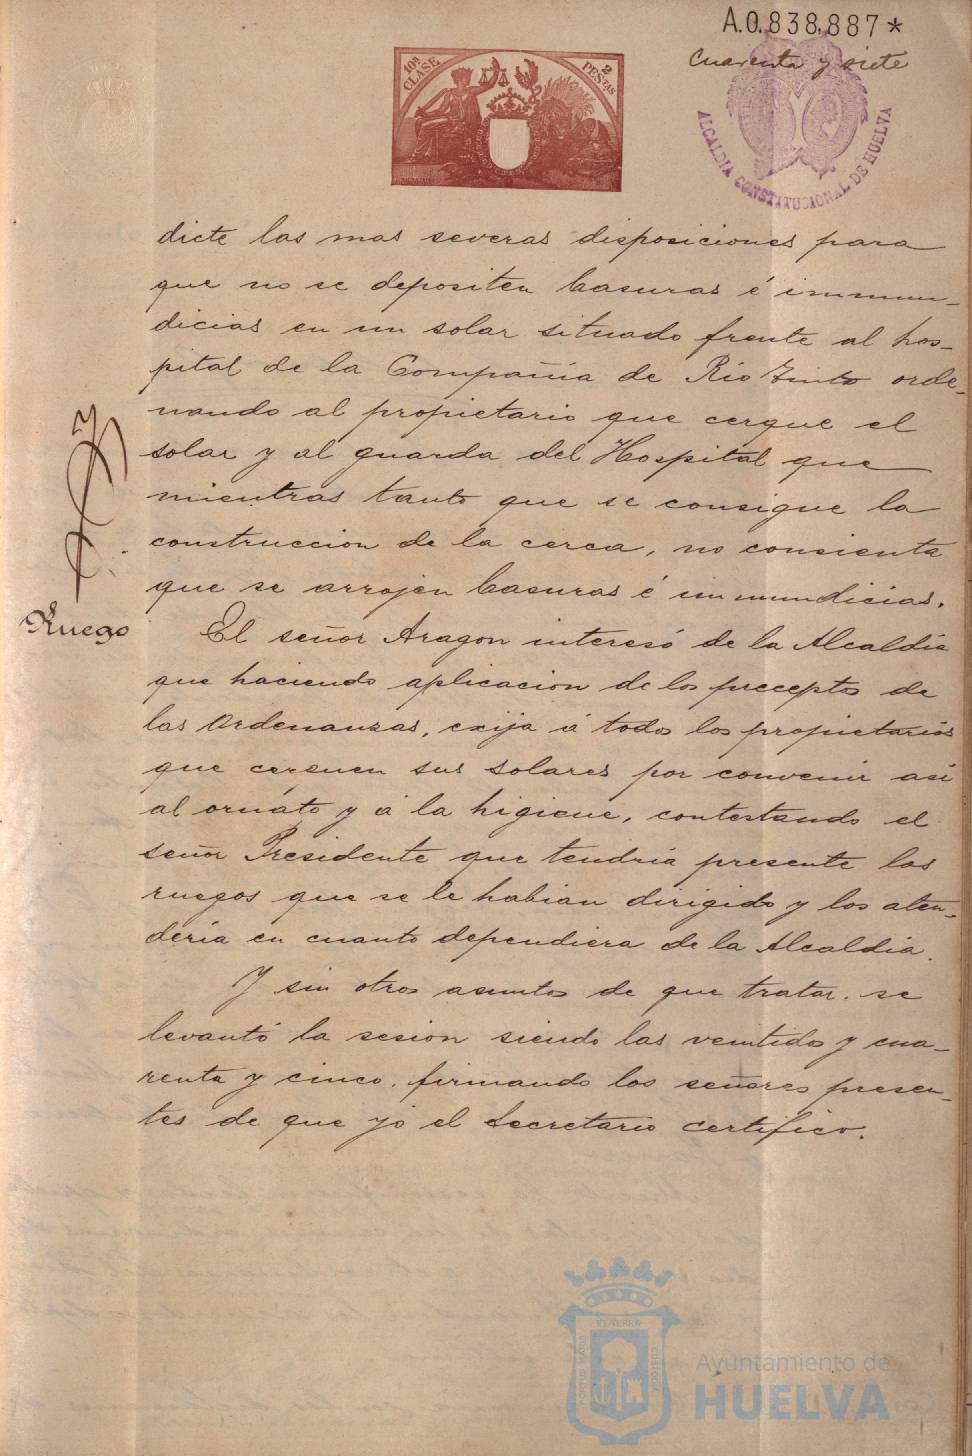 A.0.838,887*
Cuarenta y siete
10ª CLASE
2 PESTAS
ALCALDIA CONSTITUCIONAL DE HUELVA
dicte las mas severas disposiciones para
que no se depositen basuras é inmmun-
dicias en un solar situado frente al hos-
pital de la Compañia de Rio Tinto orde-
nando al propietario que cerque el
solar y al guarda del Hospital que
mientras tanto que se consigue la
construccion de la cerca, no consienta
que se arrojen basuras é inmundicias.
Ruego
El señor Aragon interesó de la Alcaldia
que haciendo aplicacion de los preceptos de
las Ordenanzas, exija á todos los propietarios
que cerquen sus solares por convenir así
al ornáto y á la higiene, contestando el
señor Presidente que tendria presente los
ruegos que se le habian dirigido y los aten-
deria en cuanto dependiera de la Alcaldia.
Y sin otros asuntos de que tratar. se
levantó la sesion siendo las veintidos y cua-
renta y cinco. firmando los señores presen-
tes de que yo el Secretario certifico.
Ayuntamiento de
HUELVA